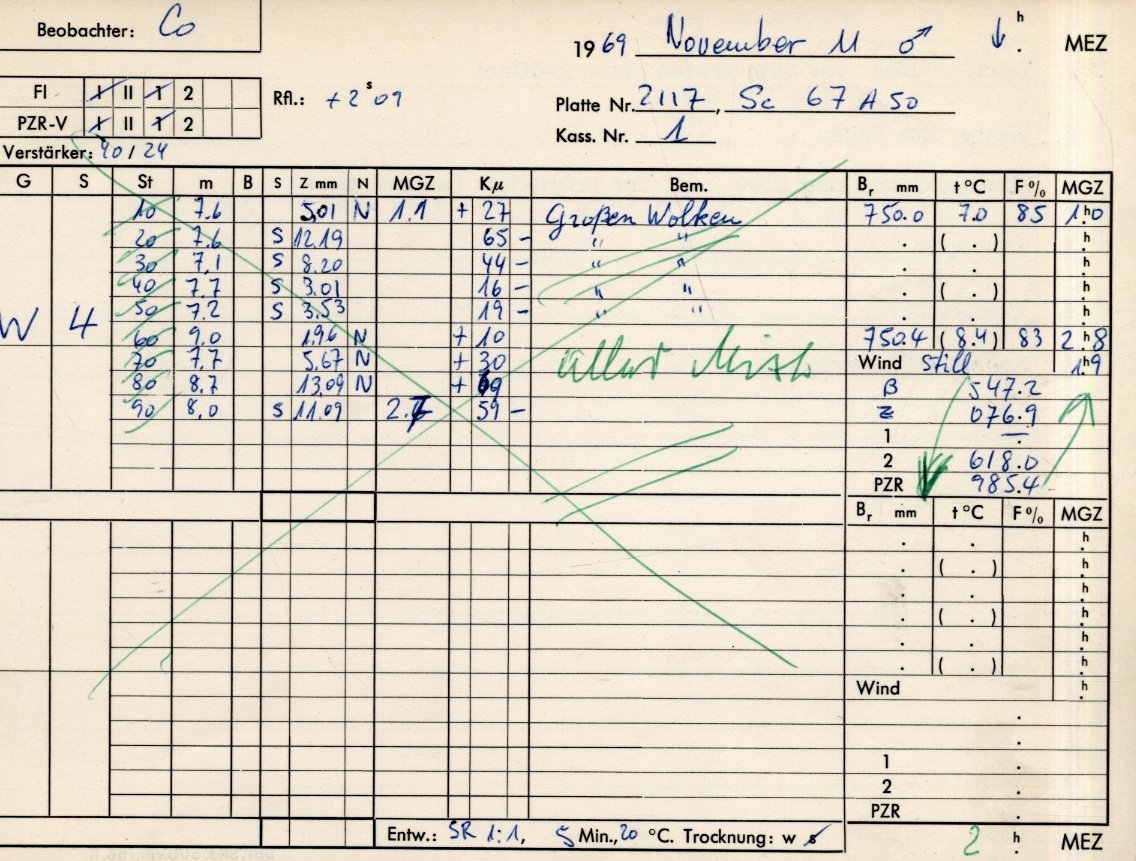 Beobachter: Co
1969 November 11 ♂ ↓ h. MEZ
FI I II 1 2
Rfl.: +2ˢ09
Platte Nr. 2117, Sc 67 A 50
PZR-V I II 1 2
Kass. Nr. 1
Verstärker: 90 / 24
G S St m B S Z mm N MGZ Kμ Bem. Br mm t °C F % MGZ
10 7.6 5.01 N 1.1 + 27 Großen Wolken 750.0 7.0 85 1.h0
20 7.6 S 12.19 65 – " " . ( . ) .h
30 7.1 S 8.20 44 – " " . . .h
40 7.7 S 3.01 16 – " " . ( . ) .h
W 4 50 7.2 S 3.53 19 – " " . . .h
60 9.0 1.96 N + 10 750.4 (8.4) 83 2.h8
70 7.7 5.67 N + 30 Wind still 1.h9
80 8.7 13.09 N + 69 B 547.2
90 8.0 S 11.09 2.7 59 – Z 076.9
alles Mist
1 .
2 618.0
PZR 985.4
Br mm t °C F % MGZ
. . .h
. ( . ) .h
. . .h
. ( . ) .h
. . .h
. ( . ) .h
Wind .h
.
.
1 .
2 .
PZR .
Entw.: SR 1:1, 5 Min., 20 °C. Trocknung: w s 2 h. MEZ